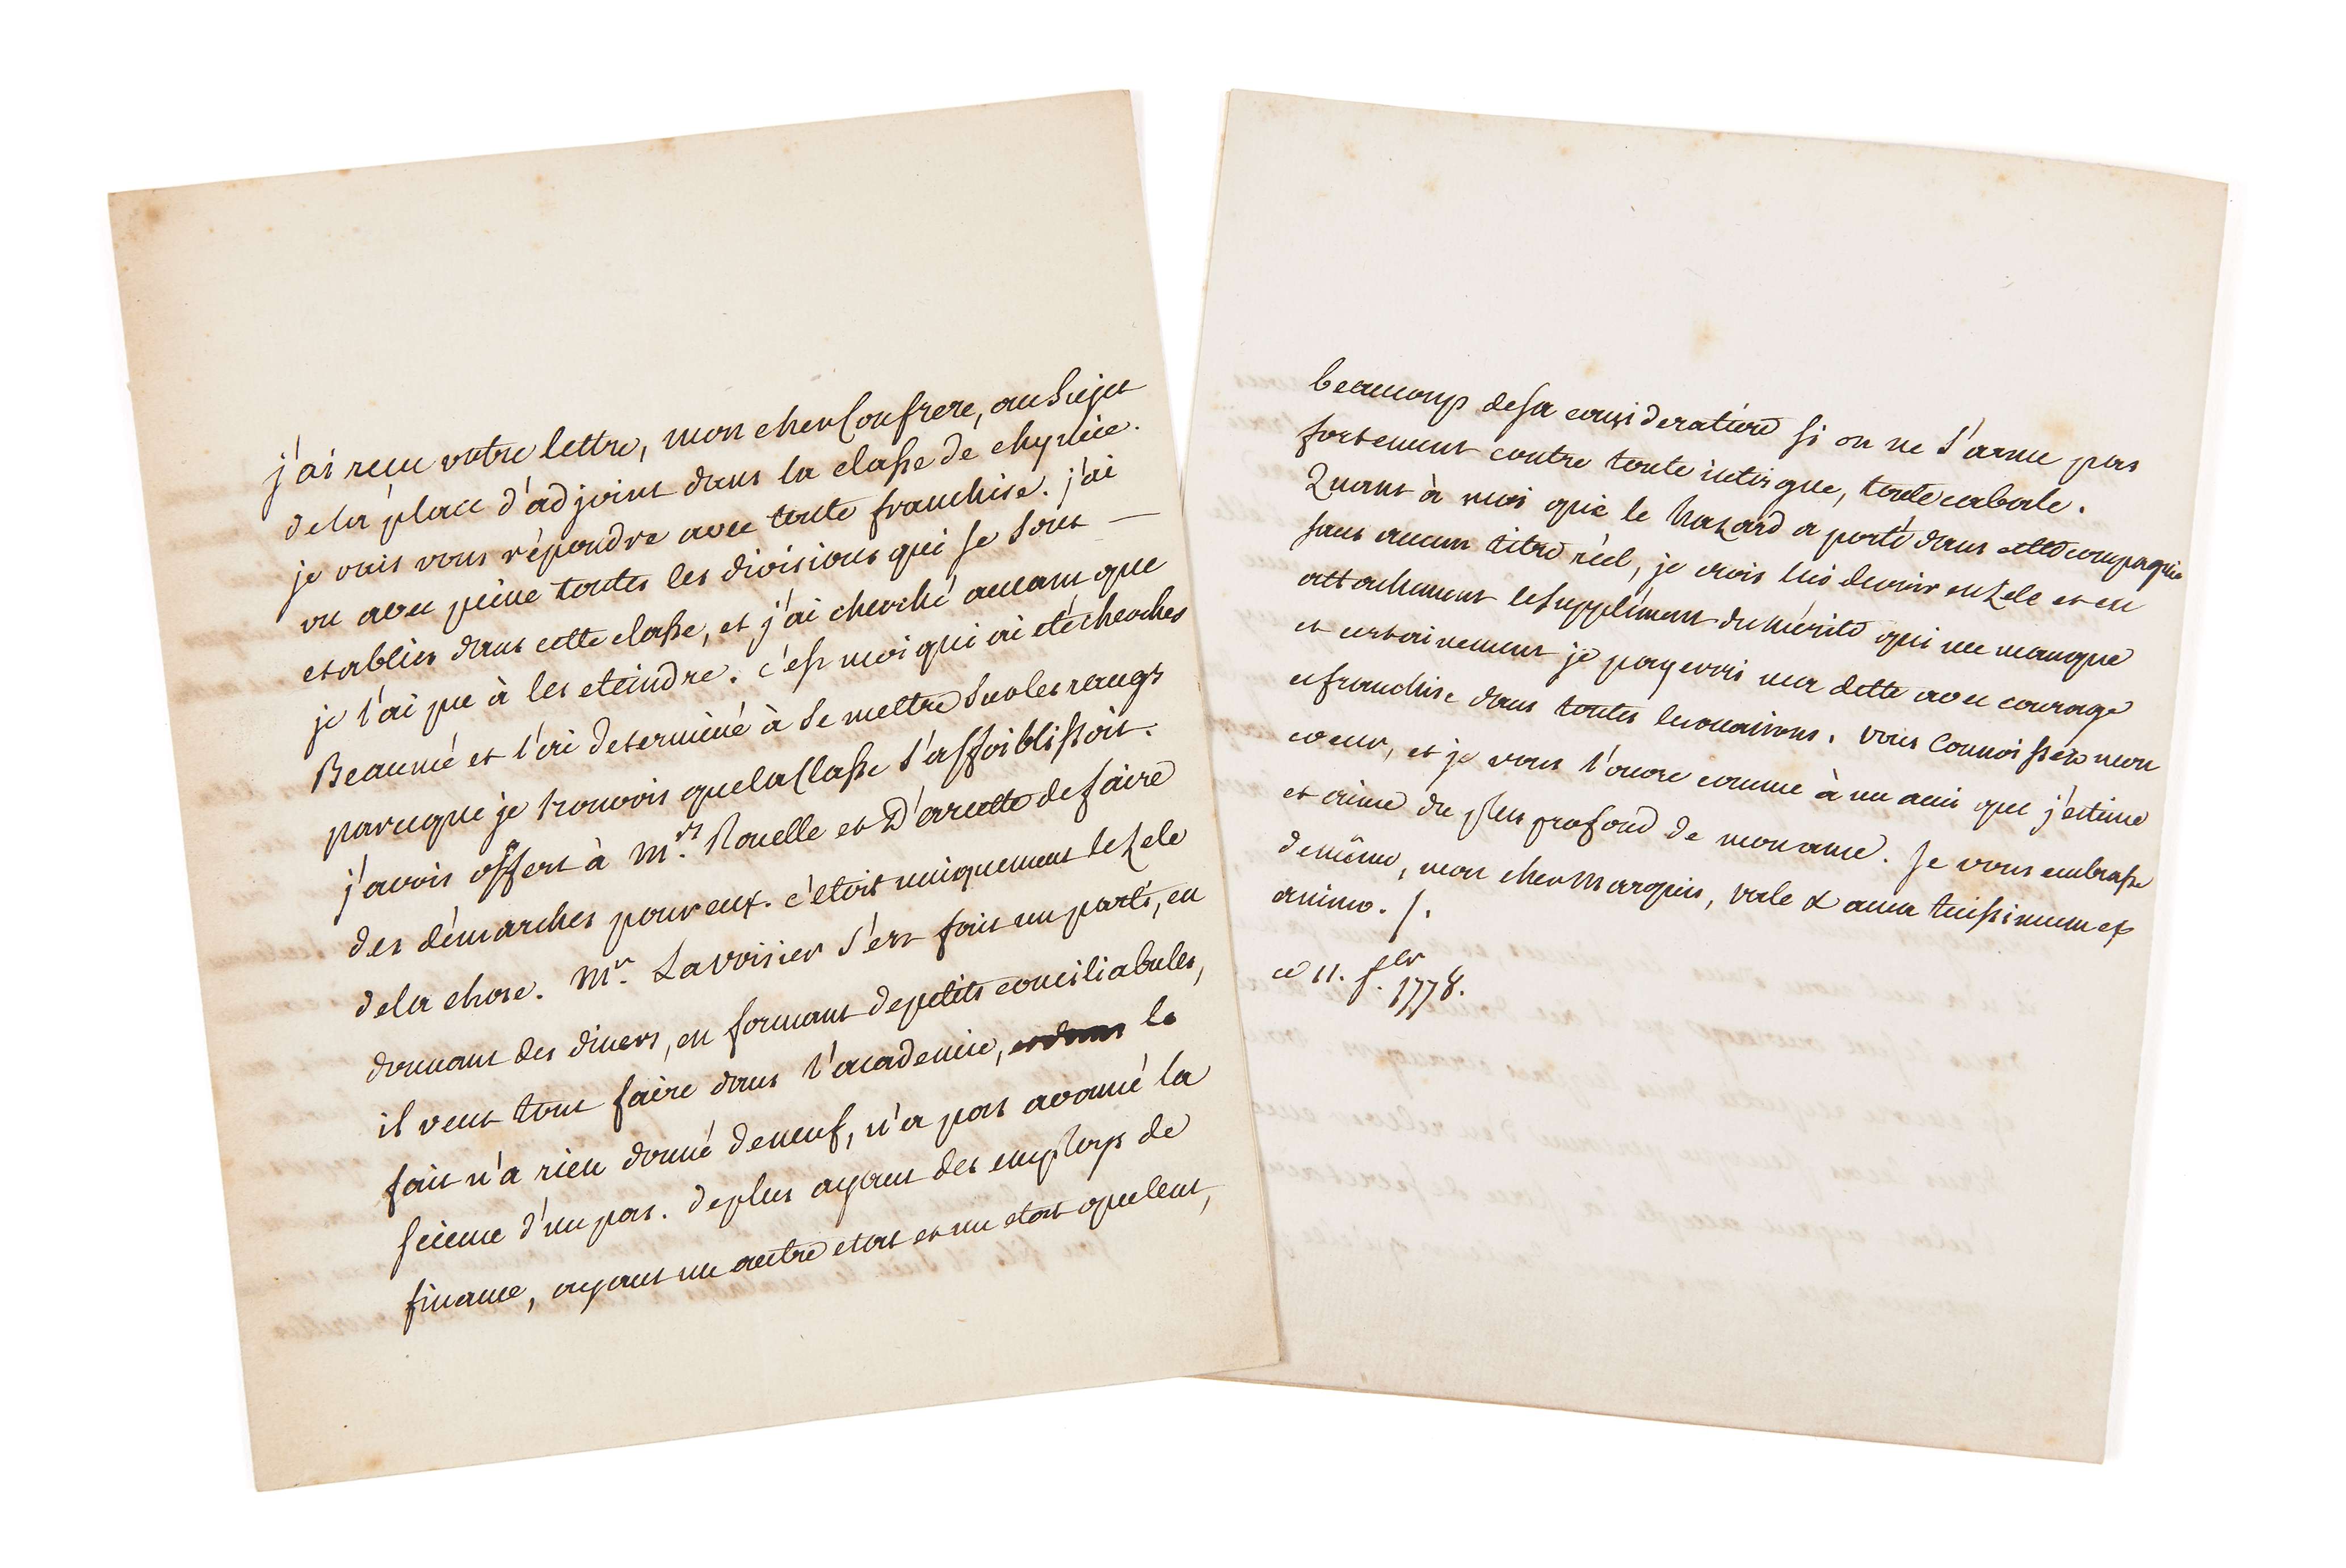 j'ai reçu votre lettre, mon cher Confrere, au Sujet
de la place d'adjoint dans la classe de chymie.
je vais vous répondre avec toute franchise. j'ai
vu avec peine toutes les divisions qui se sont —
etablies dans cette classe, et j'ai cherché autant que
je l'ai pu à les eteindre. c'est moi qui ai eté chercher
Beaumé et l'ai determiné à se mettre sur les rangs
parceque je trouvois que la Classe s'affoiblissoit.
j'avois offert à M.rs Rouelle et D'arcette de faire
des démarches pour eux. c'etoit uniquement le Zele
de la chose. Mr. Lavoisier s'est fait un parti, en
donnant des diners, en formant de petits conciliabules,
il veut tout faire dans l'academie, et dans le
fait n'a rien donné de neuf, n'a pas avancé la
science d'un pas. de plus ayant des employs de
finance, ayant un autre etat et un etat opulent,
beaucoup de sa consideration si on ne s'arme pas
fortement contre toute intrigue, toute cabale.
Quant à moi que le hazard a porté dans cette compagnie
sans aucun titre réel, je crois lui devoir en Zele et en
attachement le supplément du mérite qui me manque
et certainement je payerai ma dette avec courage
et franchise dans toutes les occasions. vous Connoissez mon
cœur, et je vous l'ouvre comme à un ami que j'estime
et aime du plus profond de mon ame. Je vous embrasse
de même, mon cher Marquis, vale & ama tuissimum ex
animo. /.
ce 11. f.er 1778.